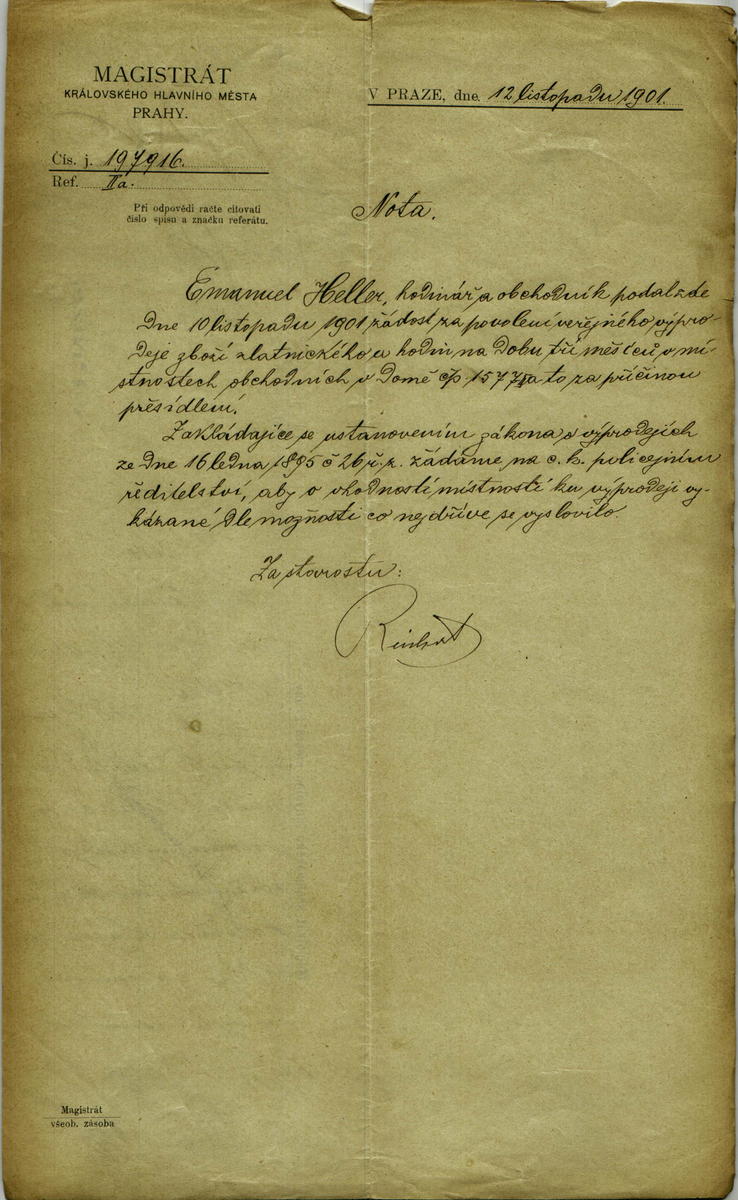 MAGISTRÁT
KRÁLOVSKÉHO HLAVNÍHO MĚSTA
PRAHY.
V PRAZE, dne 12 listopadu 1901.
Čís. j. 197916.
Ref. IIa.
Při odpovědi račte citovati
číslo spisu a značku referátu.
Nota.
Emanuel Heller, hodinář a obchodník podal zde
dne 10 listopadu 1901 žádost za povolení veřejného výpro-
deje zboží zlatnického a hodin na dobu tří měsíců v mí-
stnostech obchodních v domě čp. 1577 a to za příčinou
přesídlení.
Zakládajíce se ustanovením zákona o výprodejích
ze dne 16 ledna 1895 č 26 ř. z. žádáme na c. k. policejním
ředitelství, aby o vhodnosti místností ku výprodeji vy-
kázané dle možnosti co nejdříve se vyslovilo.
Za starostu:
Magistrát
všeob. zásoba